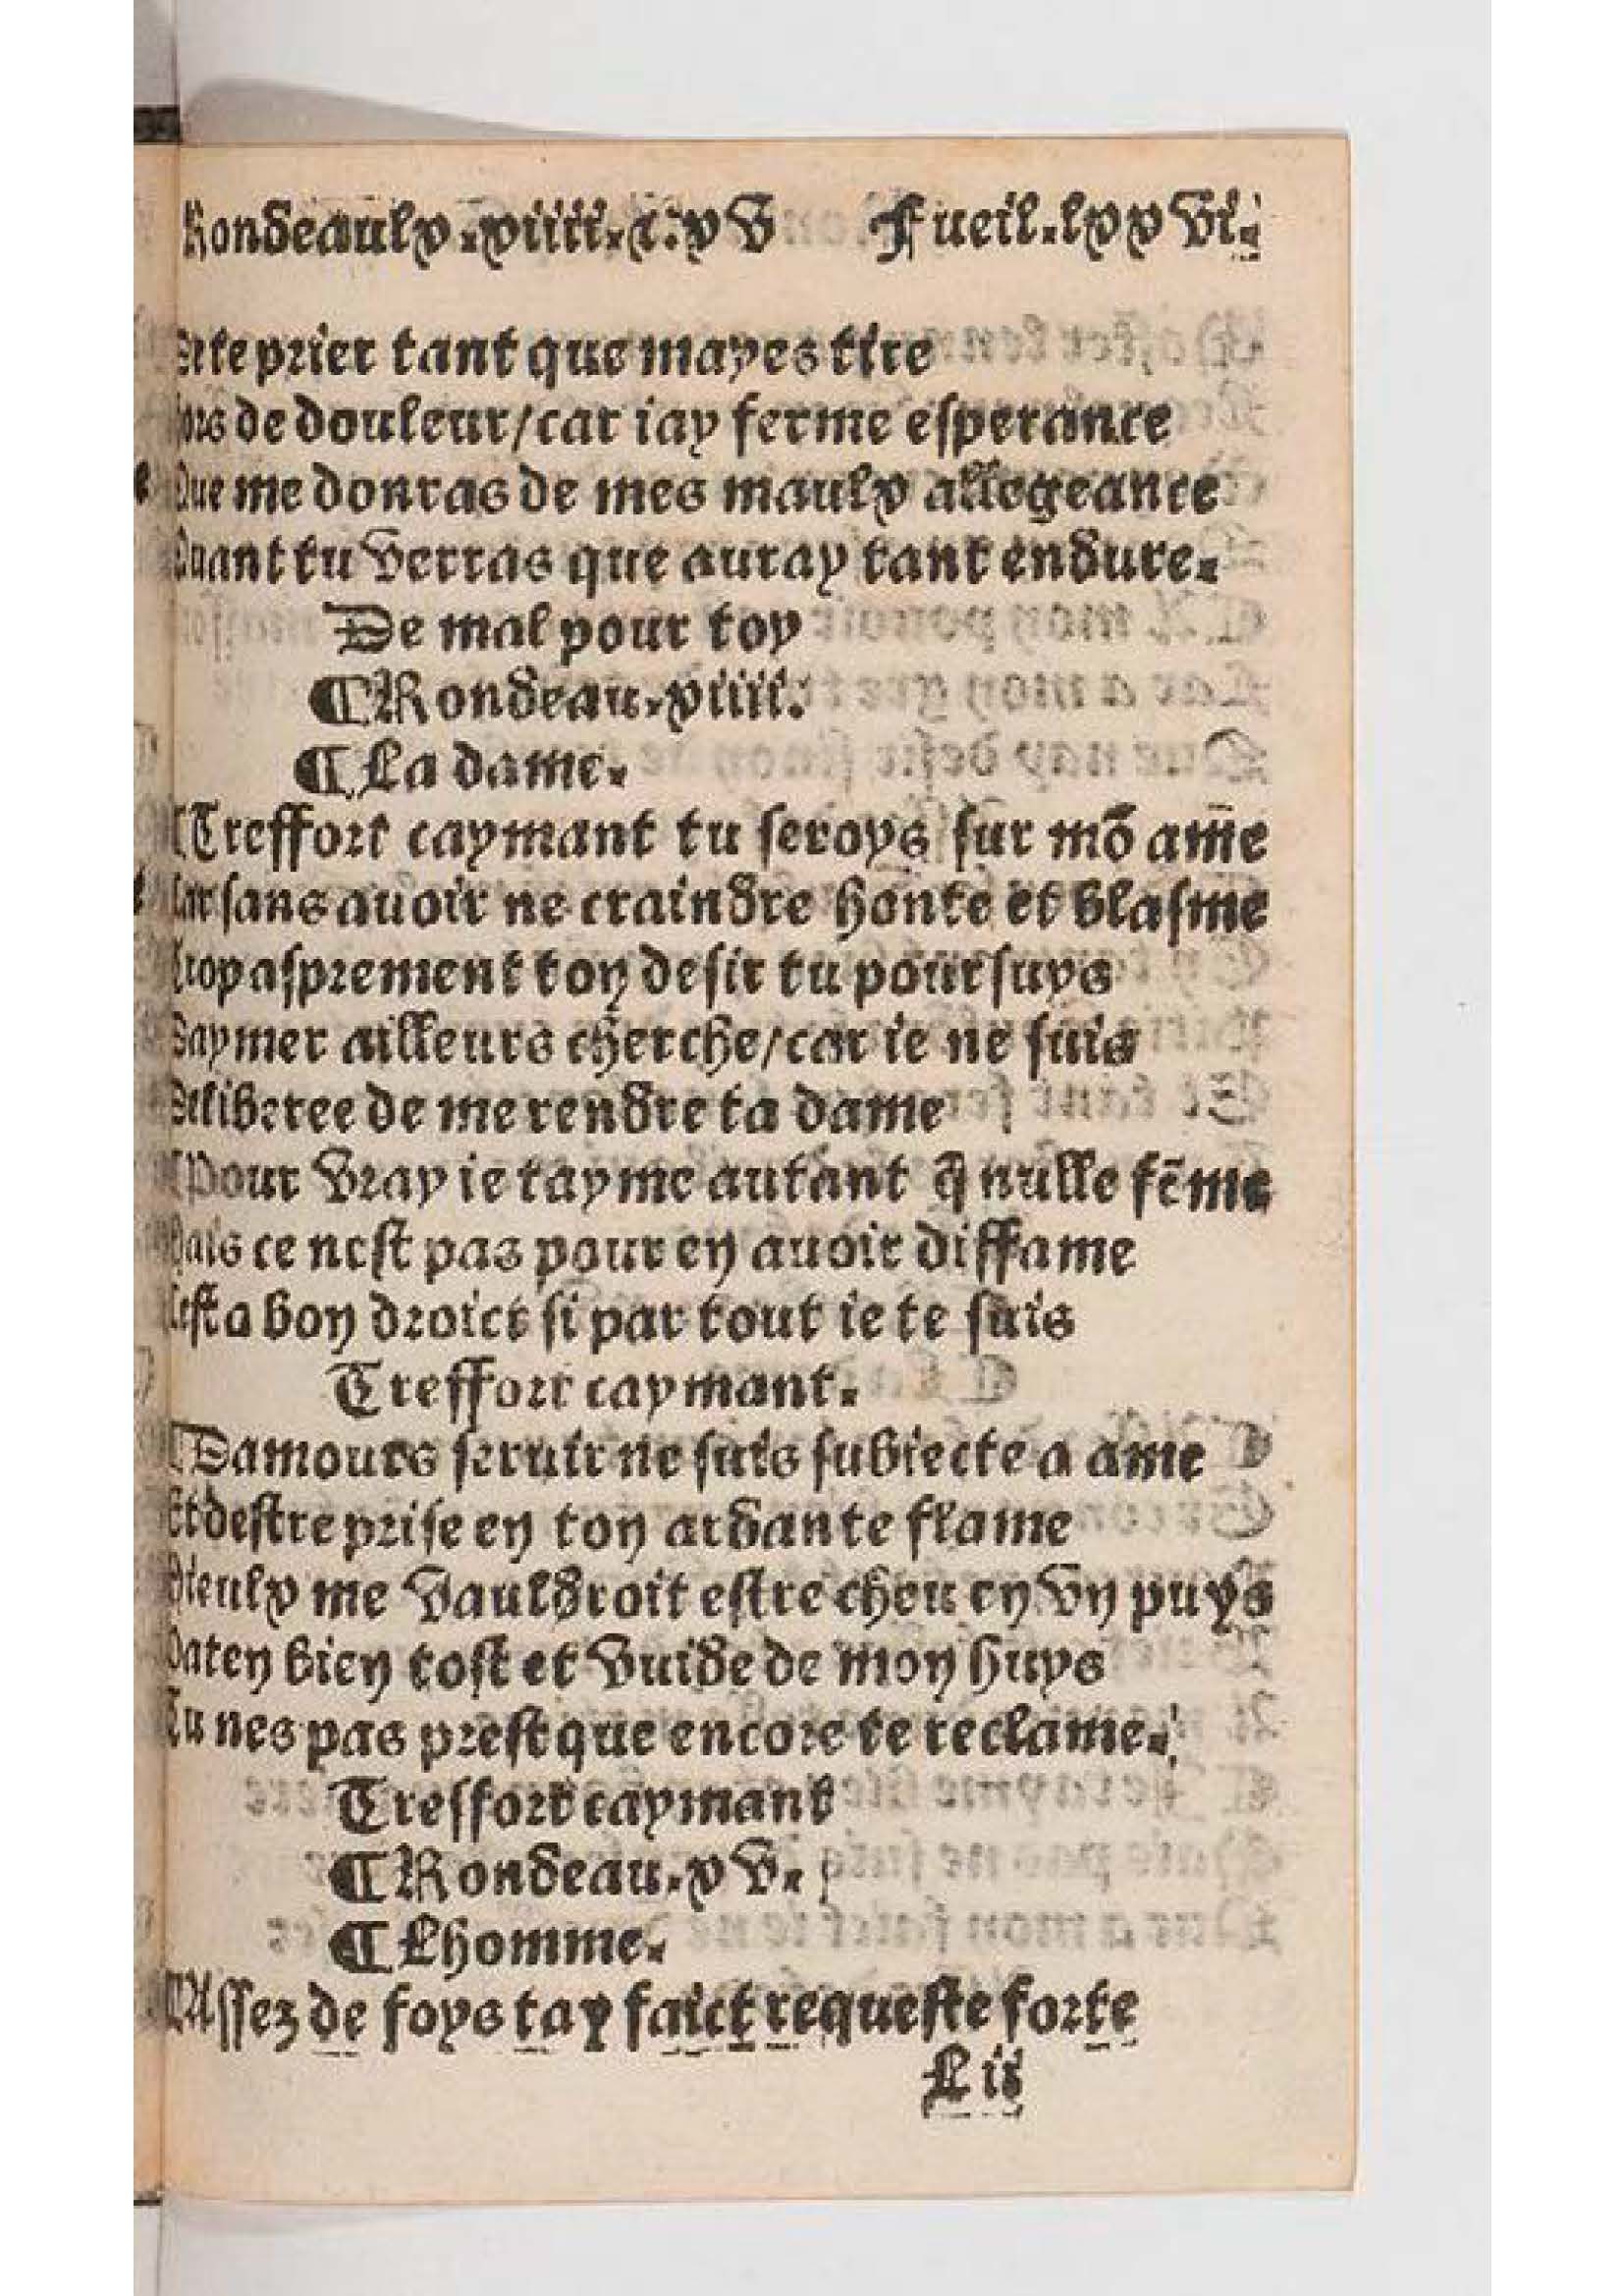 Rondeaulx.xiiii.⁊.xv Fueil.lxxvi.
De te prier tant que mayes tire
hors de douleur/car iay ferme esperance
Que me donras de mes maulx allegeance
Quant tu verras que auray tant endure.
De mal pour toy
¶Rondeau.xiiii.
¶La dame.
¶Treffort caymant tu seroys sur mõ ame
Car sans auoir ne craindre honte et blasme
Trop asprement ton desir tu poursuys
Daymer ailleurs cherche/car ie ne suis
Deliberee de me rendre ta dame
¶Pour vray ie tayme autant q̃ nulle fẽme
Mais ce nest pas pour en auoir diffame
Cest a bon droict si par tout ie te suis
Treffort caymant.
¶Damours seruir ne suis subiecte a ame
Et destre prise en ton ardante flame
Mieulx me vauldroit estre cheu en vn puys
Vaten bien tost et vuide de mon huys
Tu nes pas prest que encore te reclame.
Tresfort caymant
¶Rondeau.xv.
¶Lhomme.
¶Assez de foys tay faict requeste forte
L ii